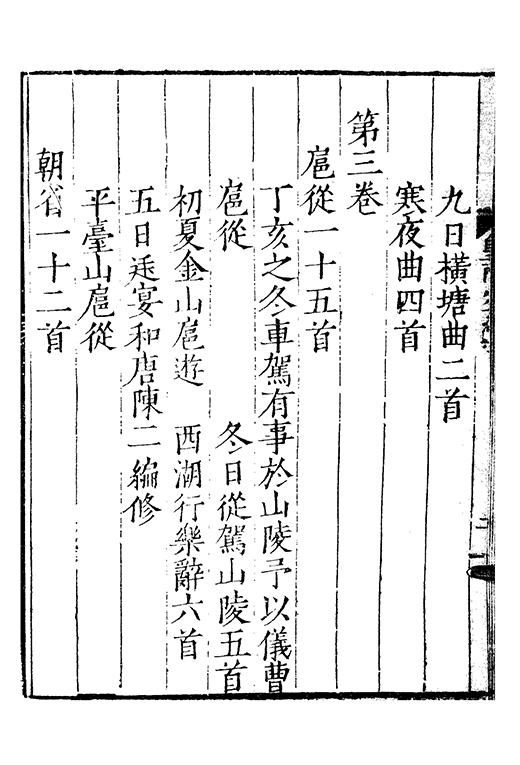 九日橫塘曲二首
寒夜曲四首
第三卷
扈從一十五首
丁亥之冬車駕有事於山陵予以儀曹
扈從　冬日從駕山陵五首
初夏金山扈遊　西湖行樂辭六首
五日迋宴和唐陳二編修
平臺山扈從
朝省一十二首